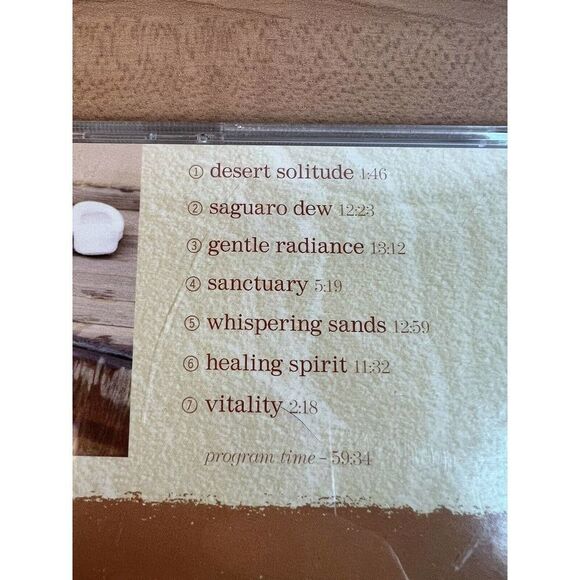 ① desert solitude 1:46
② saguaro dew 12:23
③ gentle radiance 13:12
④ sanctuary 5:19
⑤ whispering sands 12:59
⑥ healing spirit 11:32
⑦ vitality 2:18
program time – 59:34